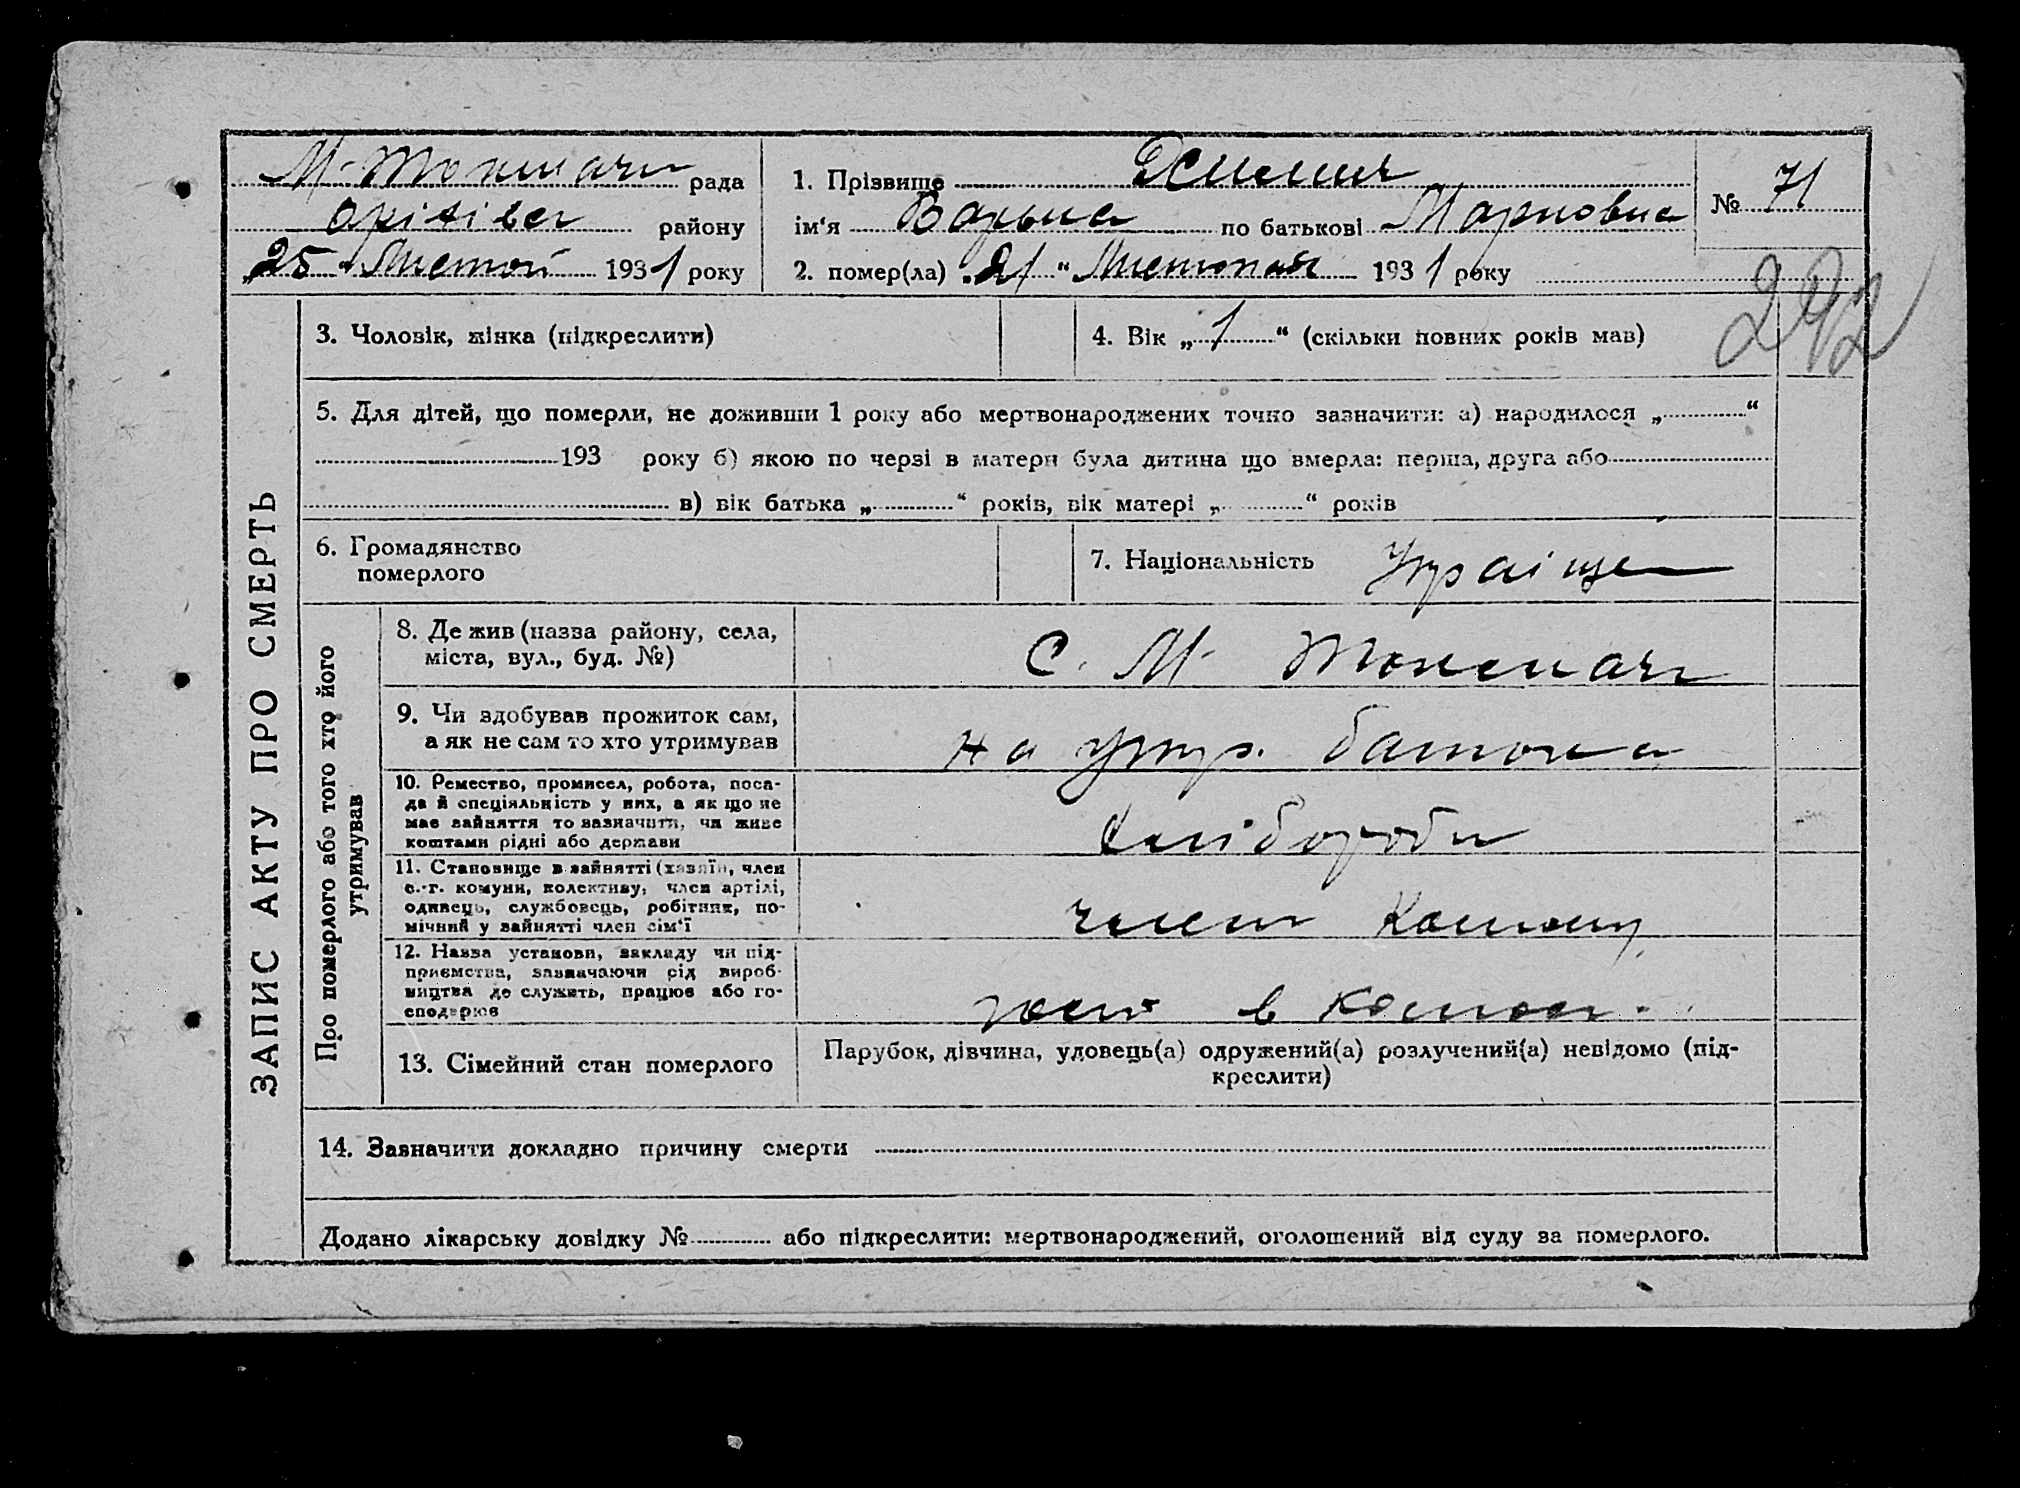 М. Токмачи рада
Оріхівсь району
„25“ Листоп 1931 року
1. Прізвище
ім‘я Варька по батькові Марковна
2. помер(ла) „21“ Листопаду 1931 року
№ 71
292
ЗАПИС АКТУ ПРО СМЕРТЬ
3. Чоловік, жінка (підкреслити)
4. Вік „1“ (скільки повних років мав)
5. Для дітей, що померли, не доживши 1 року або мертвонароджених точно зазначити: а) народилося „ “
193 року б) якою по черзі в матери була дитина що вмерла: перша, друга або
в) вік батька „ “ років, вік матері „ “ років
6. Громадянство
померлого
7. Національність Украінце
Про померлого або того хто його
утримував
8. Де жив (назва району, села,
міста, вул., буд. №)
С. М. Токмачи
9. Чи здобував прожиток сам,
а як не сам то хто утримував
на утр. батька
10. Ремество, промисел, робота, поса-
да й спеціяльність у них, а як що не
має зайняття то зазначити, чи живе
коштами рідні або держави
хліборобы
11. Становище в зайнятті (хазяїн, член
с.-г. комуни, колективу, член артілі,
одинець, службовець, робітник, по-
мічний у зайнятті член сім‘ї
член
12. Назва установи, закладу чи під-
приємства, зазначаючи рід вироб-
ництва де служить, працює або го-
сподарює
в
13. Сімейний стан померлого
Парубок, дівчина, удовець(а) одружений(а) розлучений(а) невідомо (під-
креслити)
14. Зазначити докладно причину смерти
Додано лікарську довідку № або підкреслити: мертвонароджений, оголошений від суду за померлого.